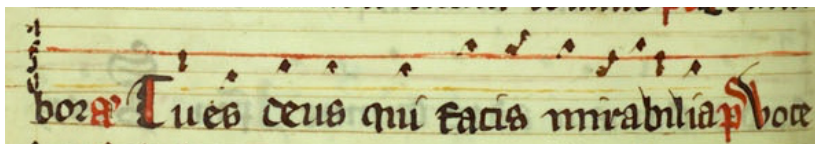 bor Tu es deus qui facis mirabilia p Voce